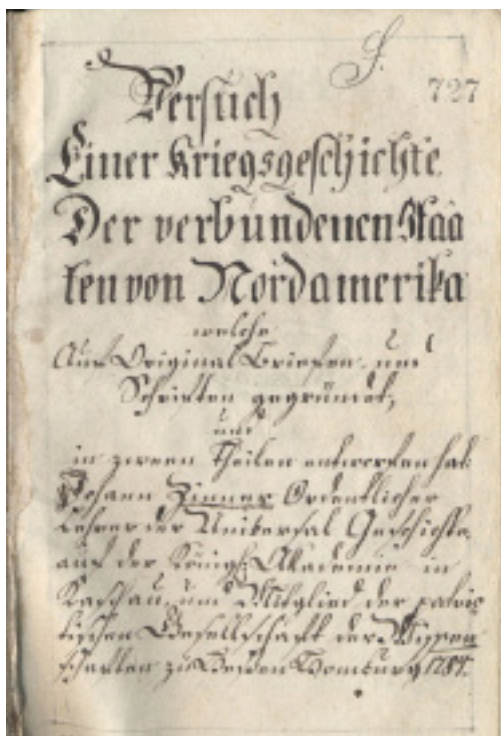 S.
727
Versuch
Einer Kriegsgeschichte
Der verbundenen Staa
ten von Nordamerika
welche
Auf Original Briefen und
Schriften gegründet,
und
in zween Theilen entworfen hat
Johann Zinner Ordentlicher
Lehrer der Universal Geschichte
auf der Königl. Akademie in
Kaschau, und Mitglied der patrio
tischen Gesellschaft der Wissen
schaften zu Hessen Homburg 1784.